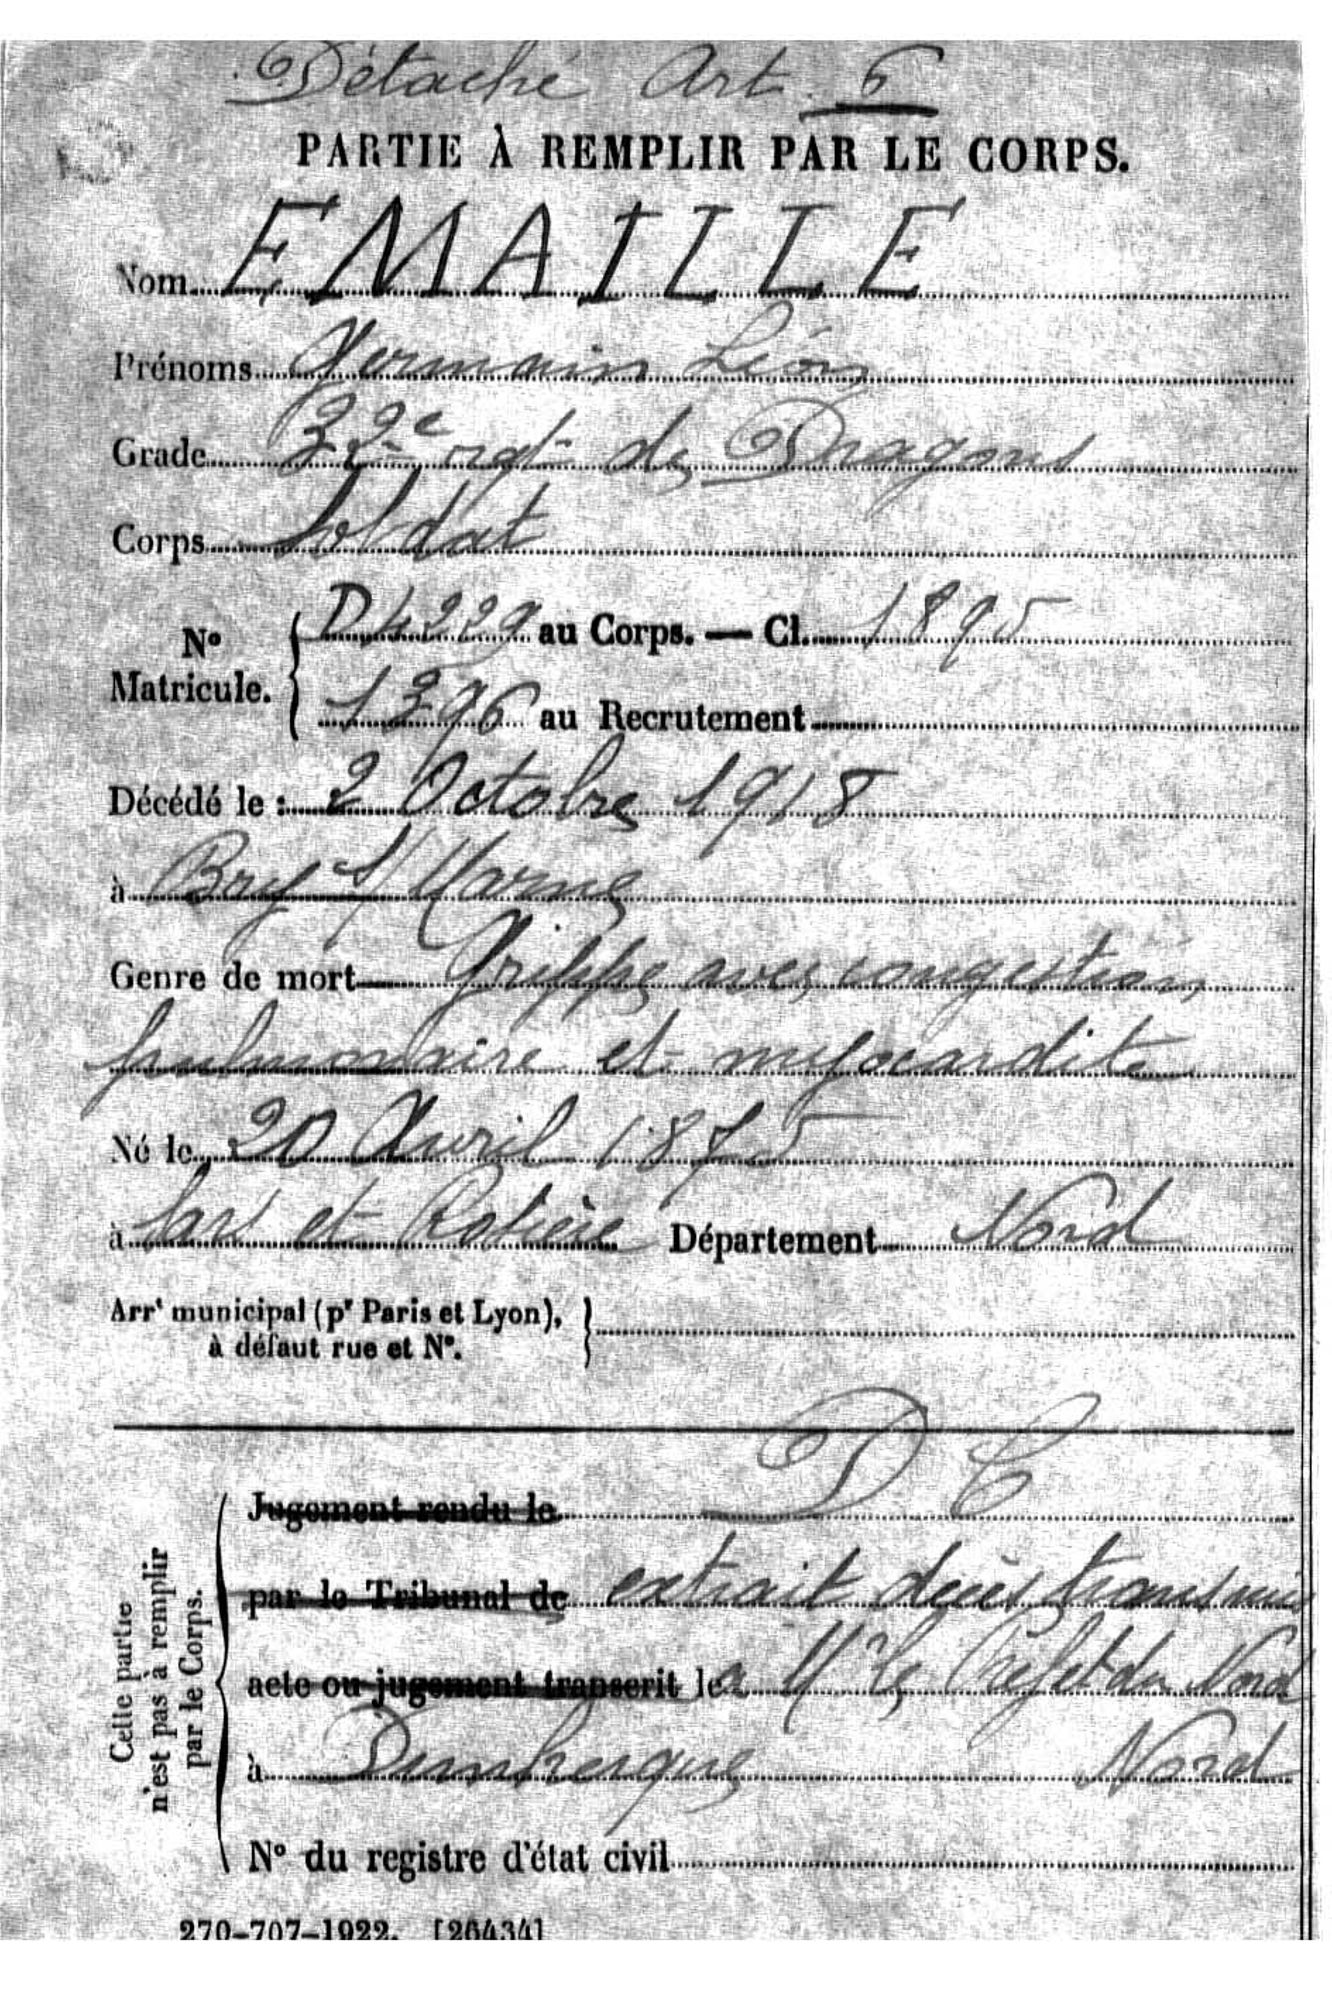 Détaché Art. 6
PARTIE À REMPLIR PAR LE CORPS.
Nom EMAILLE
Prénoms Germain Léon
Grade 32e rgt de Dragons
Corps Soldat
No Matricule. { D4229 au Corps. — Cl. 1895
1396 au Recrutement
Décédé le : 2 Octobre 1918
à Bry s/ Marne
Genre de mort Grippe avec congestion
pulmonaire et myocardite
Né le 20 Avril 1875
à Sars et Rosière Département Nord
Arrt municipal (pr Paris et Lyon),
à défaut rue et No.
D C
Jugement rendu le
par le Tribunal de extrait décès transmis
acte ou jugement transcrit le a Mr le Préfet du Nord
à Dunkerque Nord
No du registre d'état civil
Cette partie
n'est pas à remplir
par le Corps.
270-707-1922. [26434]